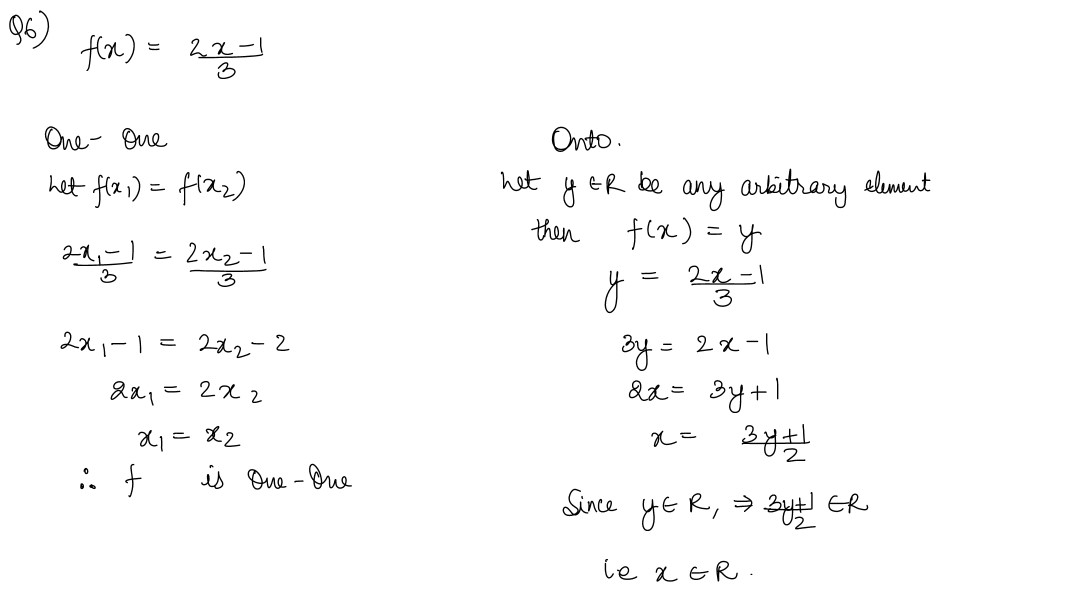 Q6) f(x) = (2x-1)/3
One-One
Let f(x₁) = f(x₂)
(2x₁-1)/3 = (2x₂-1)/3
2x₁-1 = 2x₂-2
2x₁ = 2x₂
x₁ = x₂
∴ f is One-One
Onto.
Let y ∈ R be any arbitrary element
then f(x) = y
y = (2x-1)/3
3y = 2x-1
2x = 3y+1
x = (3y+1)/2
Since y ∈ R, ⇒ (3y+1)/2 ∈ R
i.e x ∈ R.